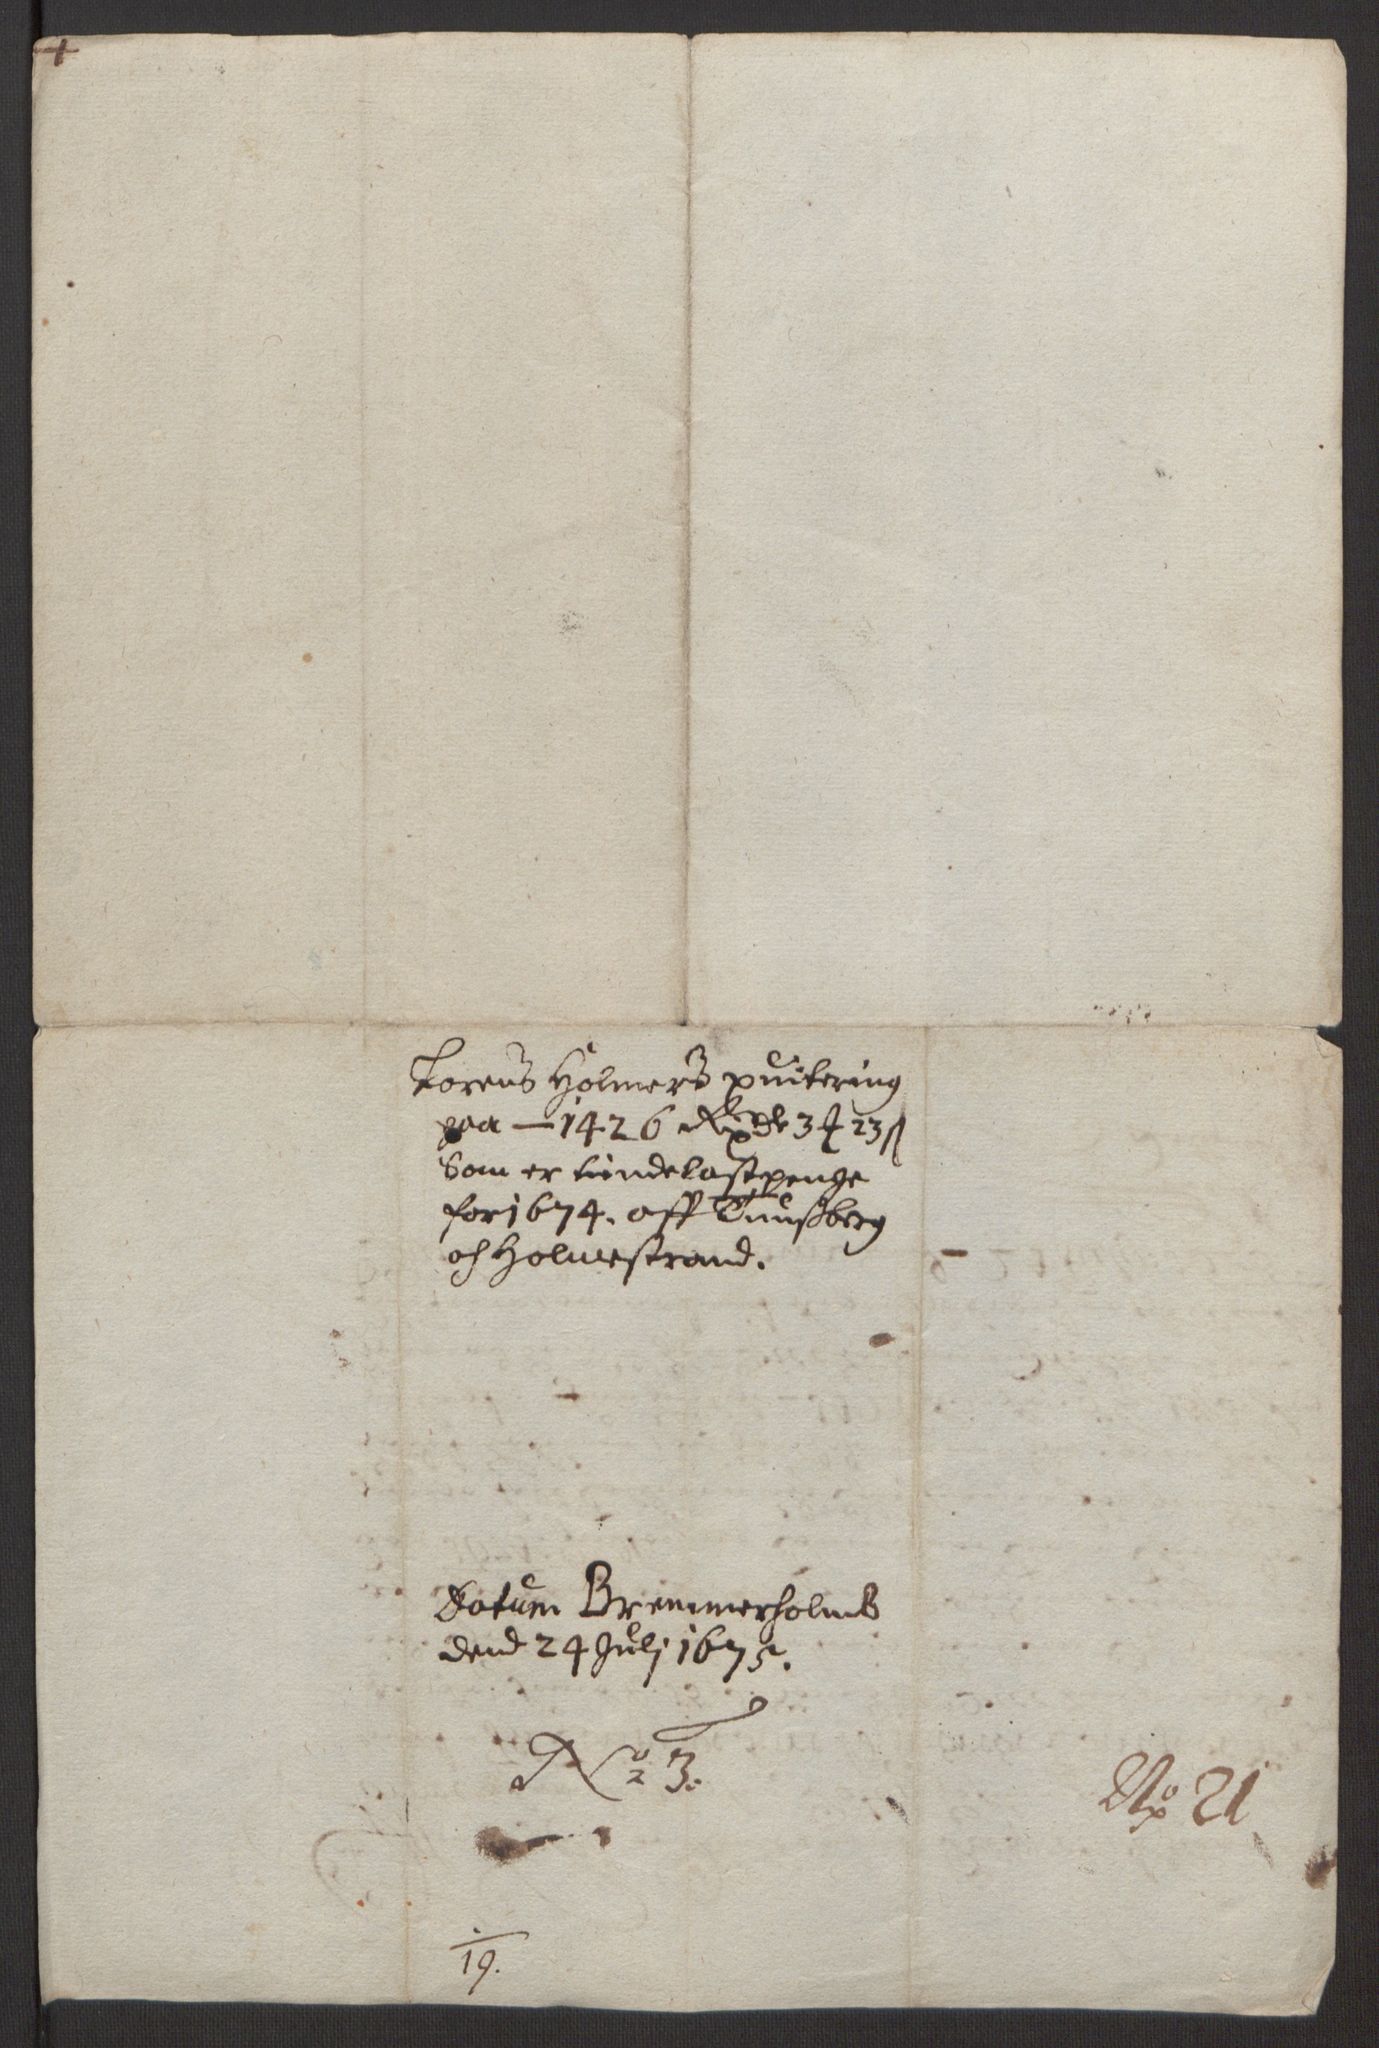 Lorens Holmers quitering
paa — 1426 Rixdr 3 ƒ 23 ß
Som er tiendelastpenge
for 1674. aff Tunsberg
och Holmestrand.
Datum Bremmerholmb
dend 24 Julj 1675.
No 3.
No 21
19.